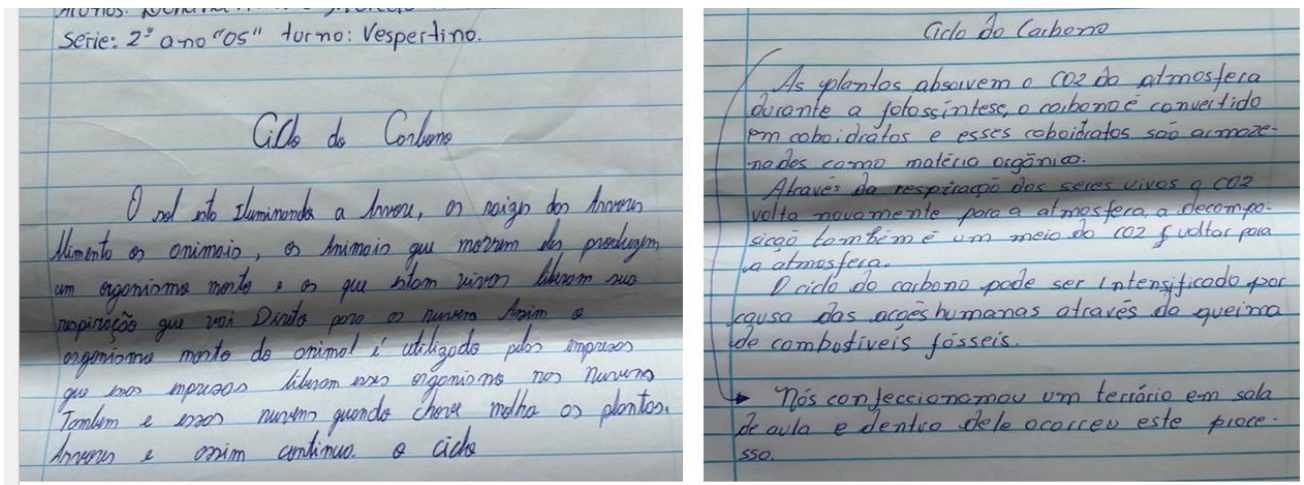 Série: 2º ano "05" turno: Vespertino.
Ciclo do Carbono
O sol esta Iluminando a Árvore, as raizes das Árvores
Alimenta os animais, os Animais que morrem eles produzem
um organismo morto e os que estam vivos liberam sua
respiração que vai Direto para as nuvens Assim o
organismo morto do animal é utilizado pelas empresas
que essas empresas liberam esses organismo nas Nuvens
Também e essas nuvens quando chove molha as plantas.
Árvores e assim continua o ciclo
Ciclo do Carbono
As plantas absorvem o CO2 da atmosfera
durante a fotossíntese, o carbono é convertido
em caboidratos e esses caboidratos são armaze-
nados como matéria orgânica.
Através da respiração dos seres vivos o CO2
volta novamente para a atmosfera, a decompo-
sição também é um meio do CO2 voltar para
a atmosfera.
O ciclo do carbono pode ser intensificado por
causa das acções humanas através da queima
de combotíveis fósseis.
Nós confeccionamou um terrário em sala
de aula e dentro dele ocorreu este proce-
sso.